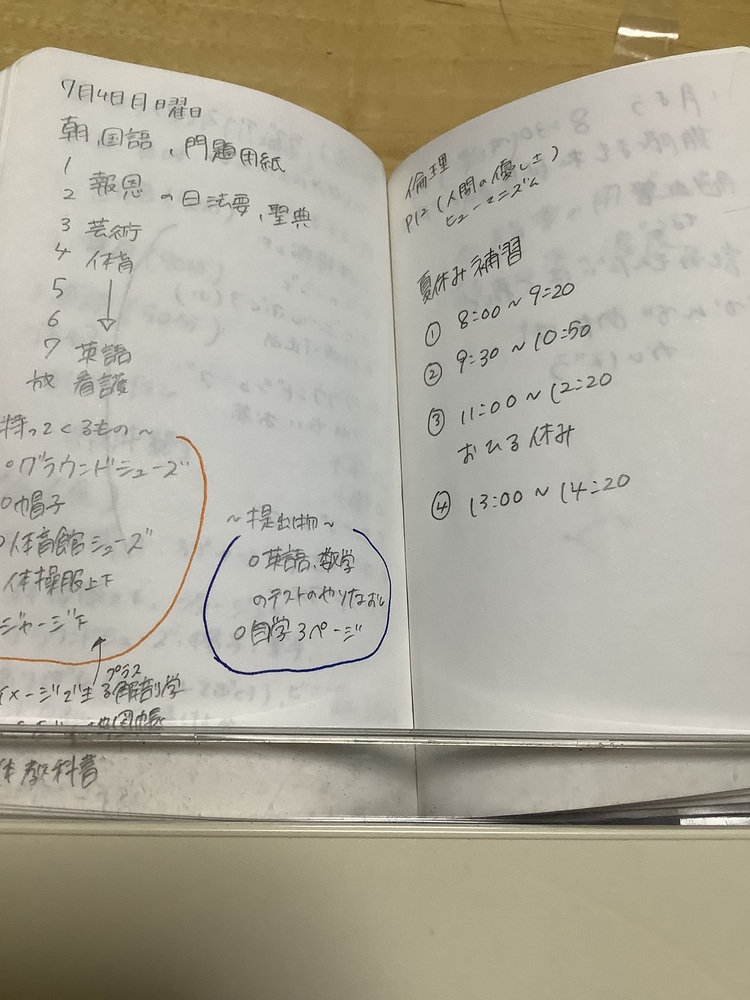 7月4日月曜日
朝、国語、問題用紙
1
2 報恩の日法要、聖典
3 芸術
4 体育
5
6
7 英語
放 看護
持ってくるもの～
○グラウンドシューズ
○帽子
○体育館シューズ
体操服上下
ジャージ下
プラス
イメージできる解剖学
地図帳
教科書
～提出物～
○英語、数学
のテストのやりなおし
○自学3ページ
倫理
P12(人間の優しさ)
ヒューマニズム
夏休み補習
① 8:00～9:20
② 9:30～10:50
③ 11:00～12:20
おひる休み
④ 13:00～14:20